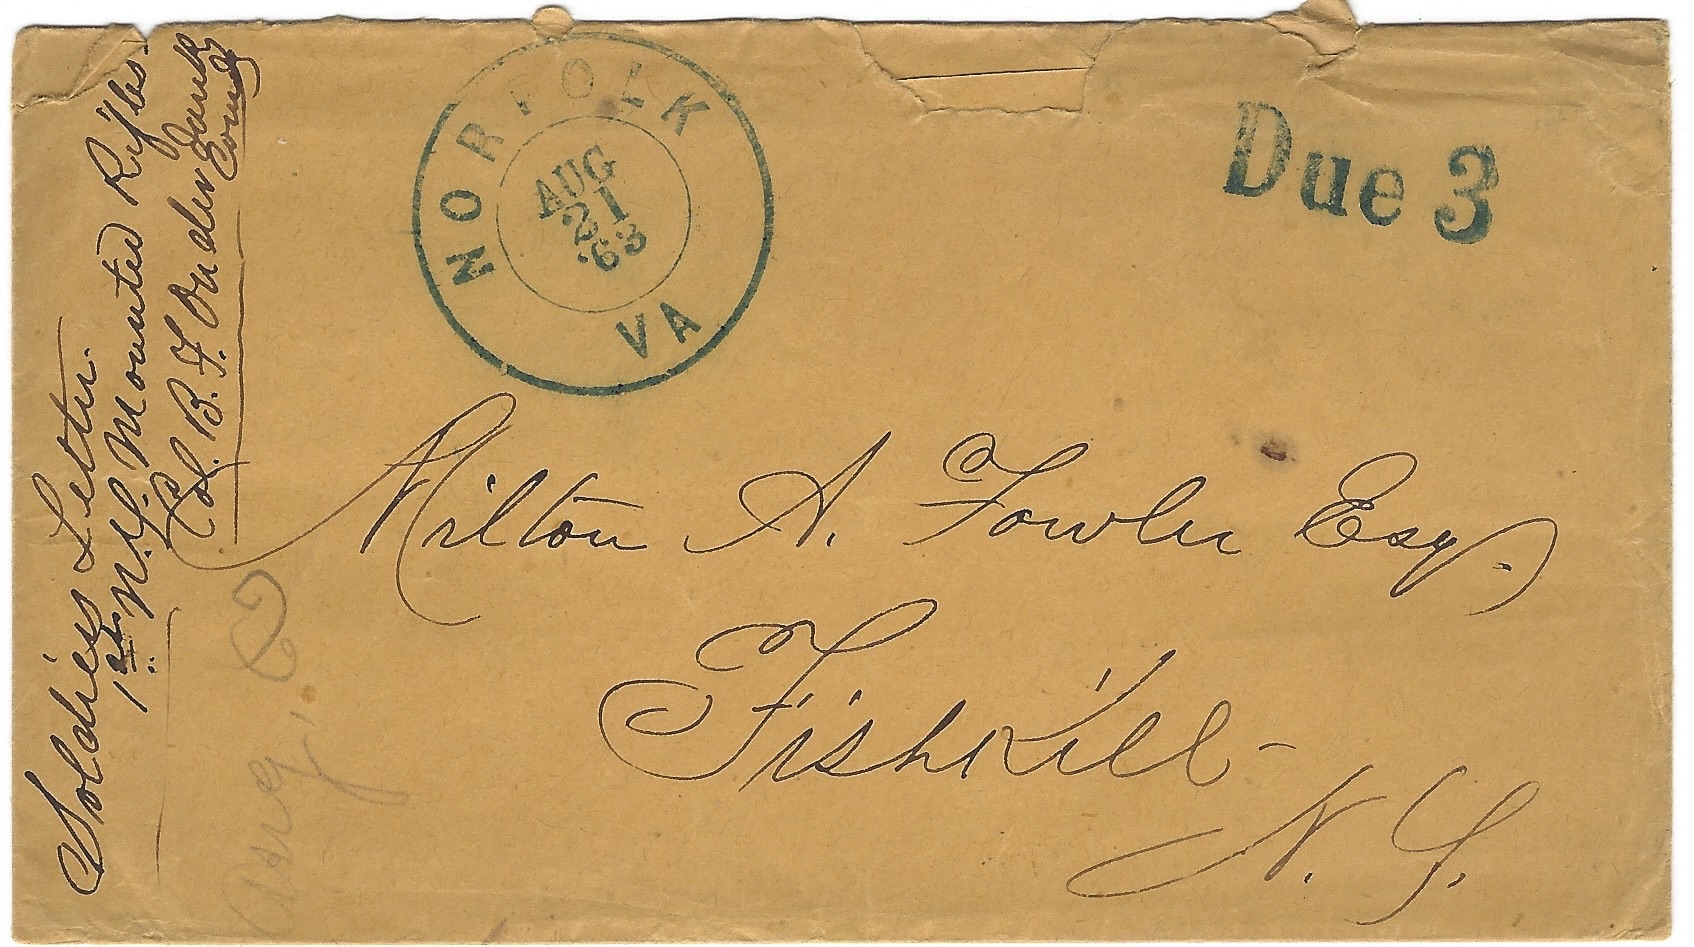 Soldiers Letter.
1st N.Y. Mounted Rifles.
Col. B. F. Onderdonk
Comdg
NORFOLK
AUG
21
'63
VA
Due 3
Milton A. Fowler Esq.
Fishkill-
N. Y.